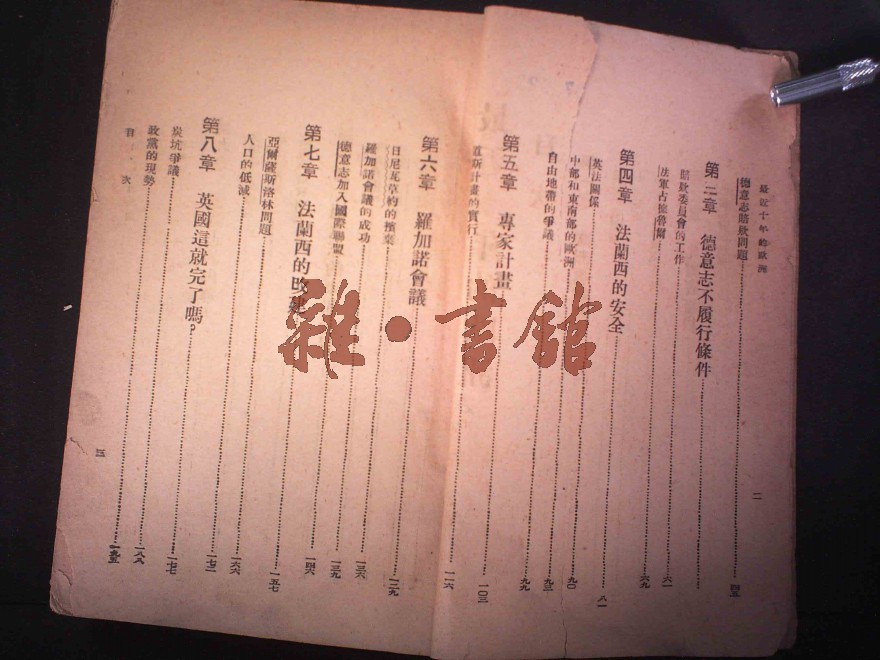 最近十年的歐洲
二
德意志賠欵問題……四五
第三章 德意志不履行條件……
賠欵委員會的工作……六一
法軍占據魯爾……六九
第四章 法蘭西的安全……八一
英法關係……九〇
中部和東南部的歐洲……九三
自由地帶的爭議……九九
第五章 專家計畫……一〇三
道斯計畫的實行……一一六
第六章 羅加諾會議……一二九
日尼瓦草約的擯棄……一三六
羅加諾會議的成功……一三九
德意志加入國際聯盟……一四六
第七章 法蘭西的改建……一五七
亞爾薩斯洛林問題……一六六
人口的低減……一七二
第八章 英國這就完了嗎?……一七七
炭坑爭議……一八八
政黨的現勢……一九五
目次
三
雜·書館